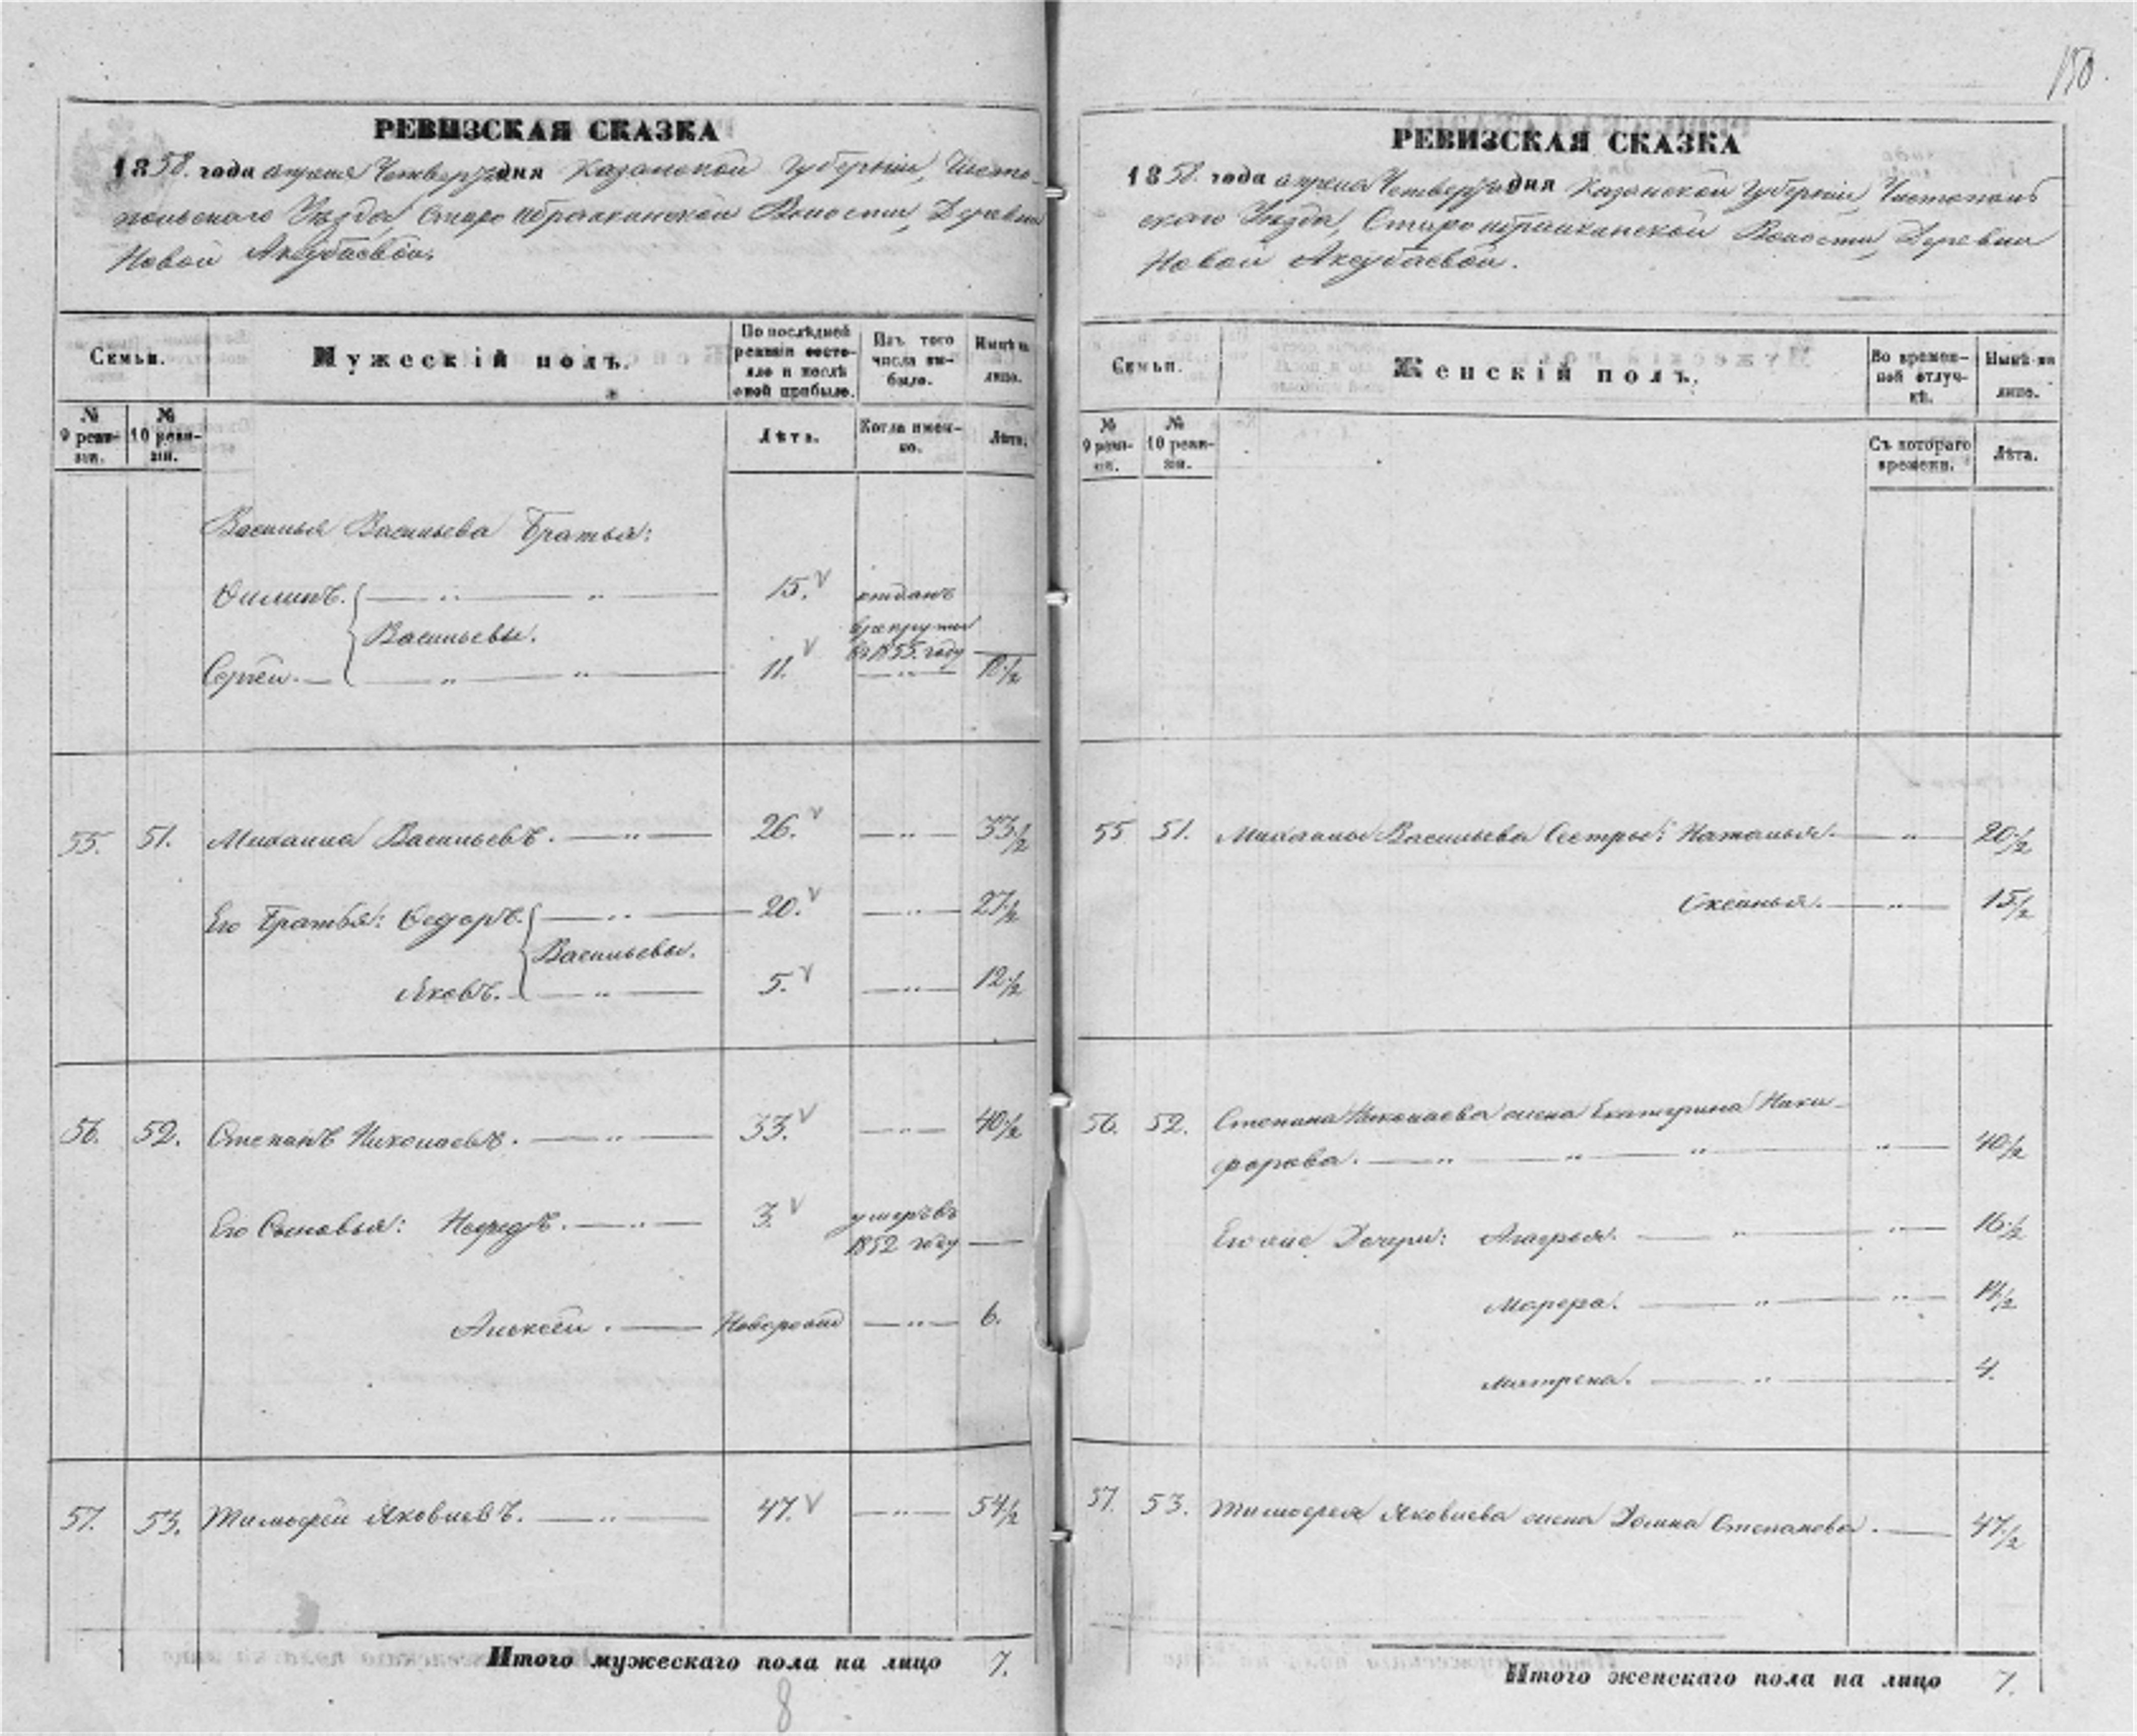 150.
РЕВИЗСКАЯ СКАЗКА
1858. года апреля Четвертаго дня Казанской Губерніи, Чисто-
польскаго Уѣзда, Старо Ибрайкинской Волости, Деревни
Новой Аксубаевой.
Семьи.
Мужескій полъ.
По послѣдней ревизіи состояло и послѣ оной прибыло.
Изъ того числа выбыло.
Нынѣ на лицо.
№ 9 ревизіи.
№ 10 ревизіи.
Лѣта.
Когда именно.
Лѣта.
Василья Васильева Братья:
Филипъ. 15. отданъ
Васильевы. в рекруты
в 1855 году
Сергей. 11. 18 1/2
55. 51. Михаила Васильевъ. 26. 33 1/2
Его Братья: Федоръ. 20. 27 1/2
Васильевы.
Яковъ. 5. 12 1/2
56. 52. Степанъ Николаевъ. 33. 40 1/2
Его Сыновья: 3. умеръ въ
1852 году
Алексей. Новорожд 6.
57. 53. Тимофей Яковлевъ. 47. 54 1/2
Итого мужескаго пола на лицо 7.
8
РЕВИЗСКАЯ СКАЗКА
1858. года апреля Четвертаго дня Казанской Губерніи, Чистополь
скаго Уѣзда, Старо Ибрайкинской Волости, Деревни
Новой Аксубаевой.
Семьи.
Женскій полъ.
Во временной отлучкѣ.
Нынѣ на лицо.
№ 9 ревизіи.
№ 10 ревизіи.
Съ котораго времени.
Лѣта.
55 51. Михаилы Васильева Сестры: Наталья. 20 1/2
Оксинья. 15 1/2
56. 52. Степана Николаева жена Екатерина Ники-
форова. 40 1/2
Его же Дочери: Агафья. 16 1/2
Марфа. 14 1/2
Матрена. 4.
57. 53. Тимофея Яковлева жена Домна Степанова. 47 1/2
Итого женскаго пола на лицо 7.